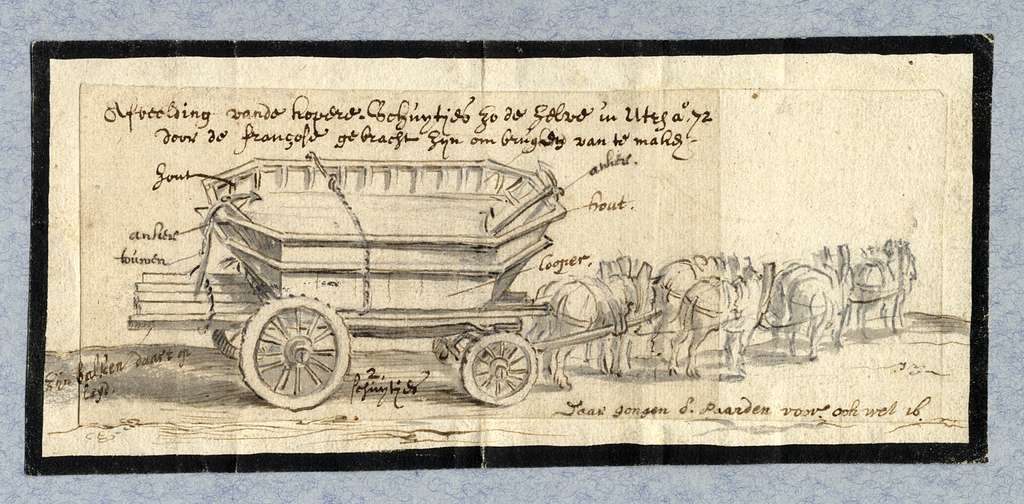 Afbeelding vande kopere Schuytjes zo de zelve in Utr. aº. 72
door de françose gebracht zijn om bruggen van te maken
hout
anker.
hout.
anker
touwen
cooper.
zijn balken daar't op
legt.
2.
schuytjes
Daar gongen 8. Paarden voor. ook wel 16.